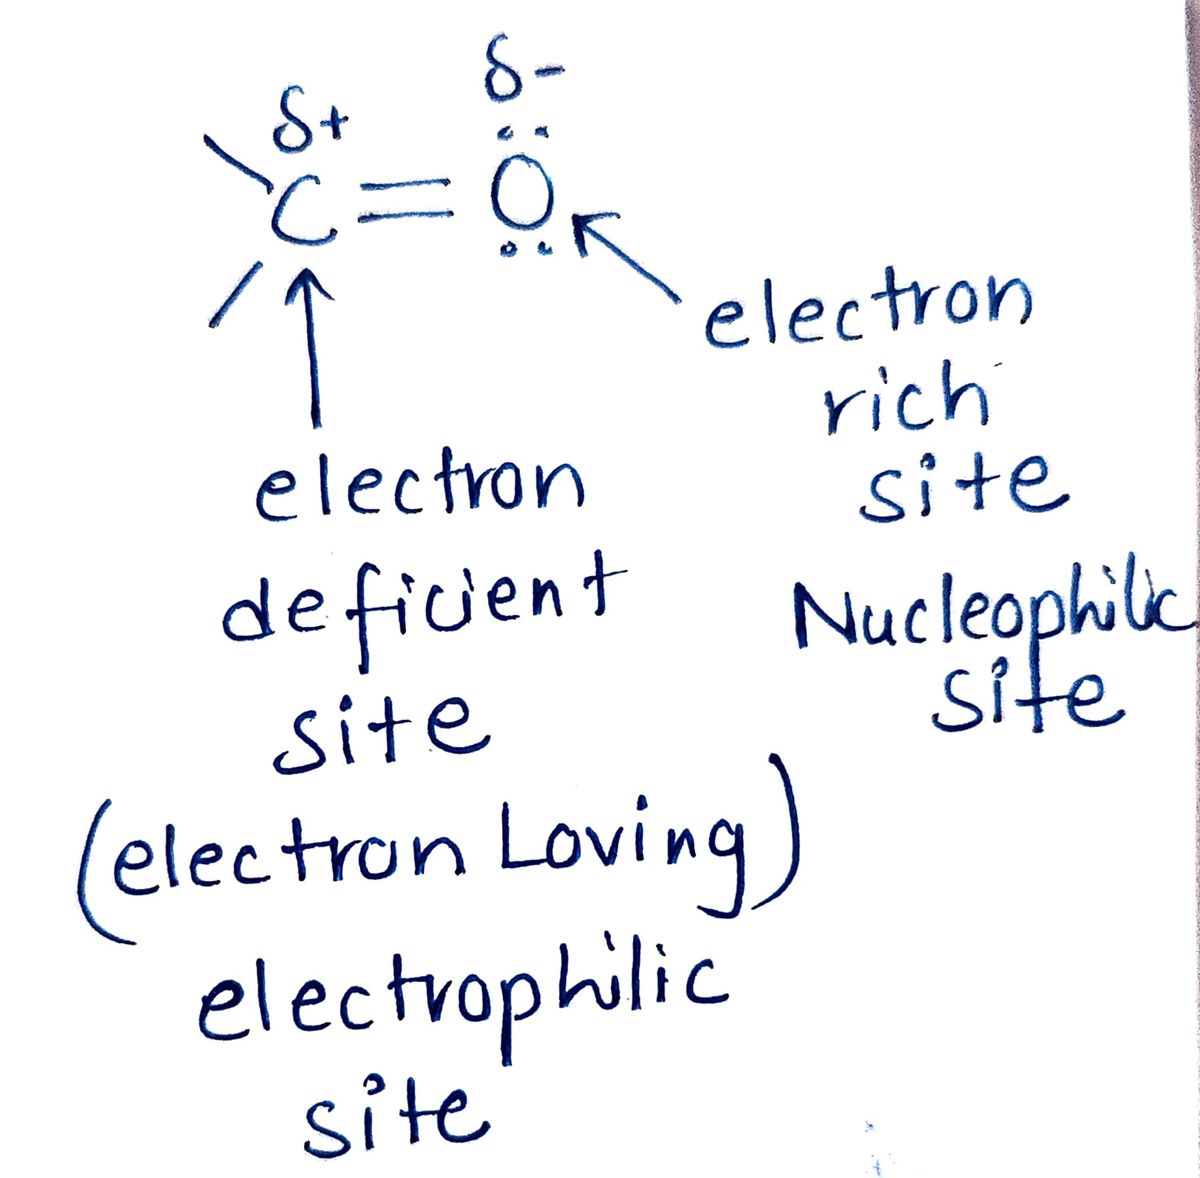 δ-
δ+
C=O
electron
rich
site
Nucleophilic
site
electron
deficient
site
(electron Loving)
electrophilic
site